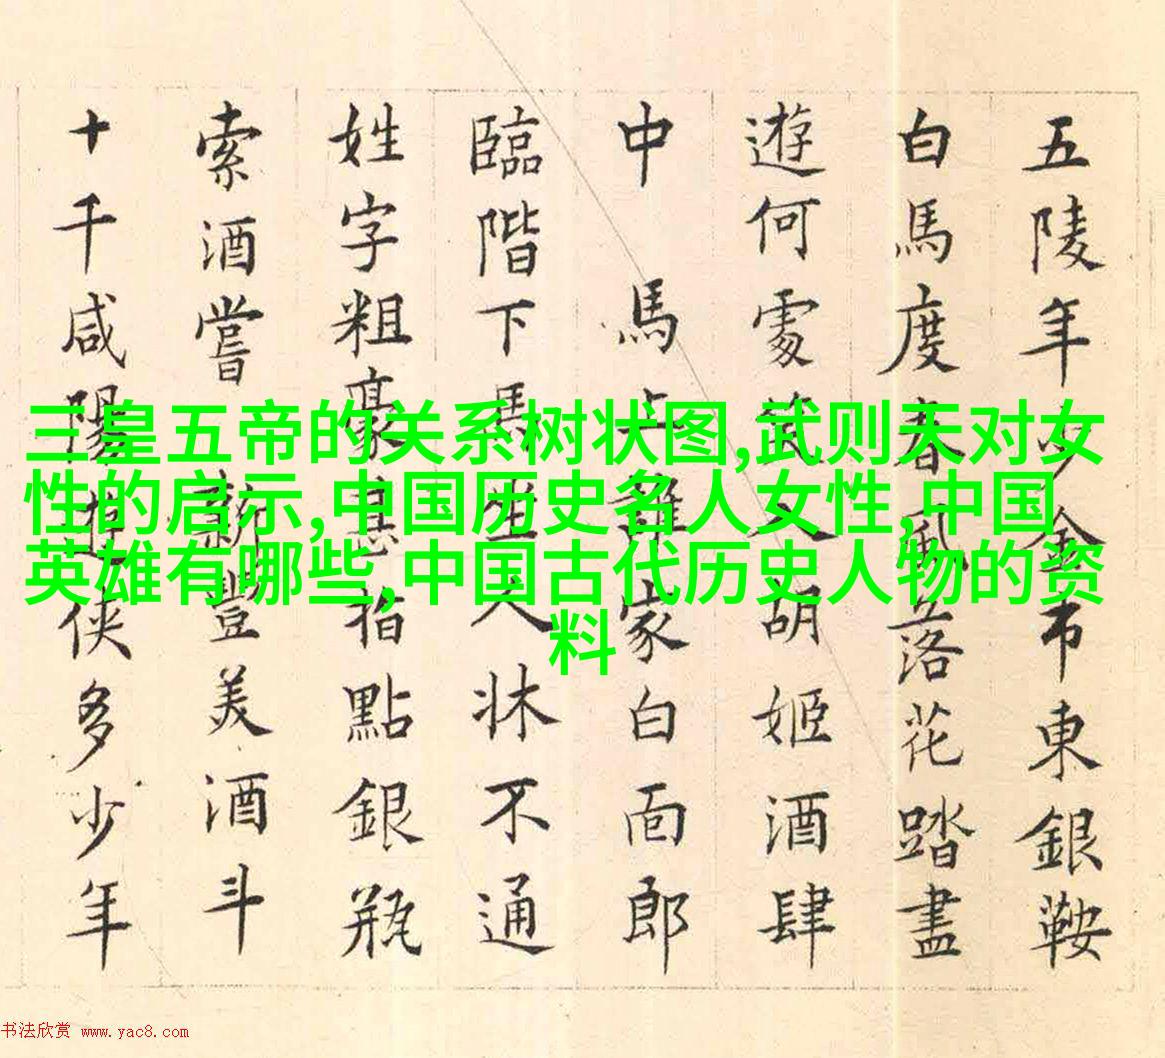 五陵年少金市東銀鞍
白馬度春風落花踏盡
遊何處笑入胡姬酒肆
中 馬上誰家白面郎
臨階下馬坐人牀不通
姓字粗豪甚指點銀瓶
索酒嘗 新豐美酒斗
十千咸陽遊俠多少年
三皇五帝的关系树状图,武则天对女
性的启示,中国历史名人女性,中国
英雄有哪些,中国古代历史人物的资
料
书法欣赏 www.yac8.com